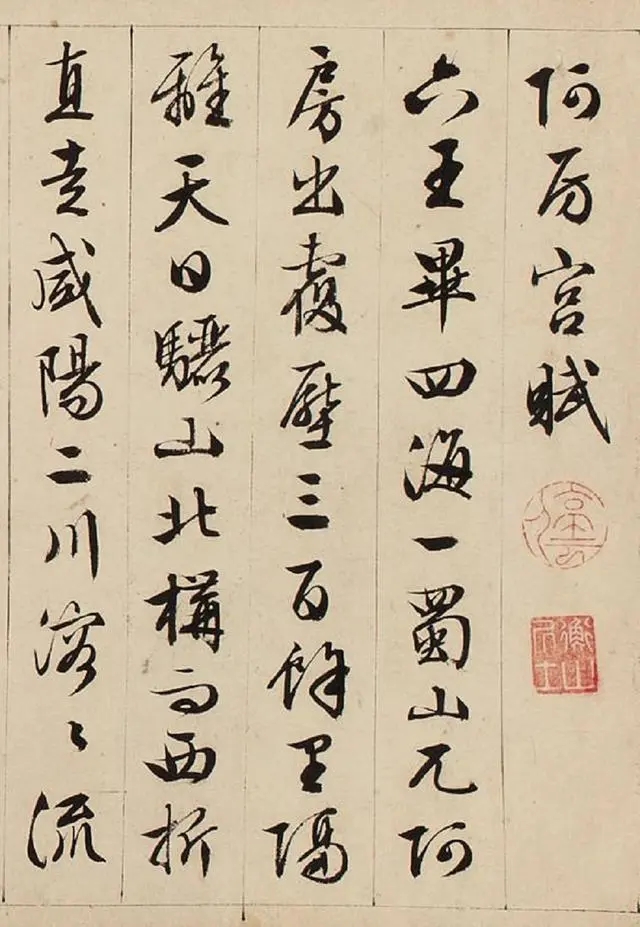 阿房宮賦
六王畢四海一蜀山兀阿
房出覆壓三百餘里隔
離天日驪山北構而西折
直走咸陽二川溶〻流
停雲
衡山居士